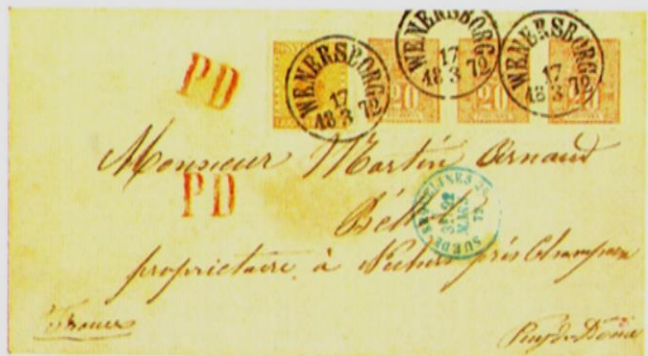 WENERSBORG 17 18 3 72
WENERSBORG 17 18 3 72
WENERSBORG 17 18 3 72
20
20
20
PD
Monsieur Martin Arnaud
PD
3 22 MARS 72
propriétaire à près
France
Puy de Dôme